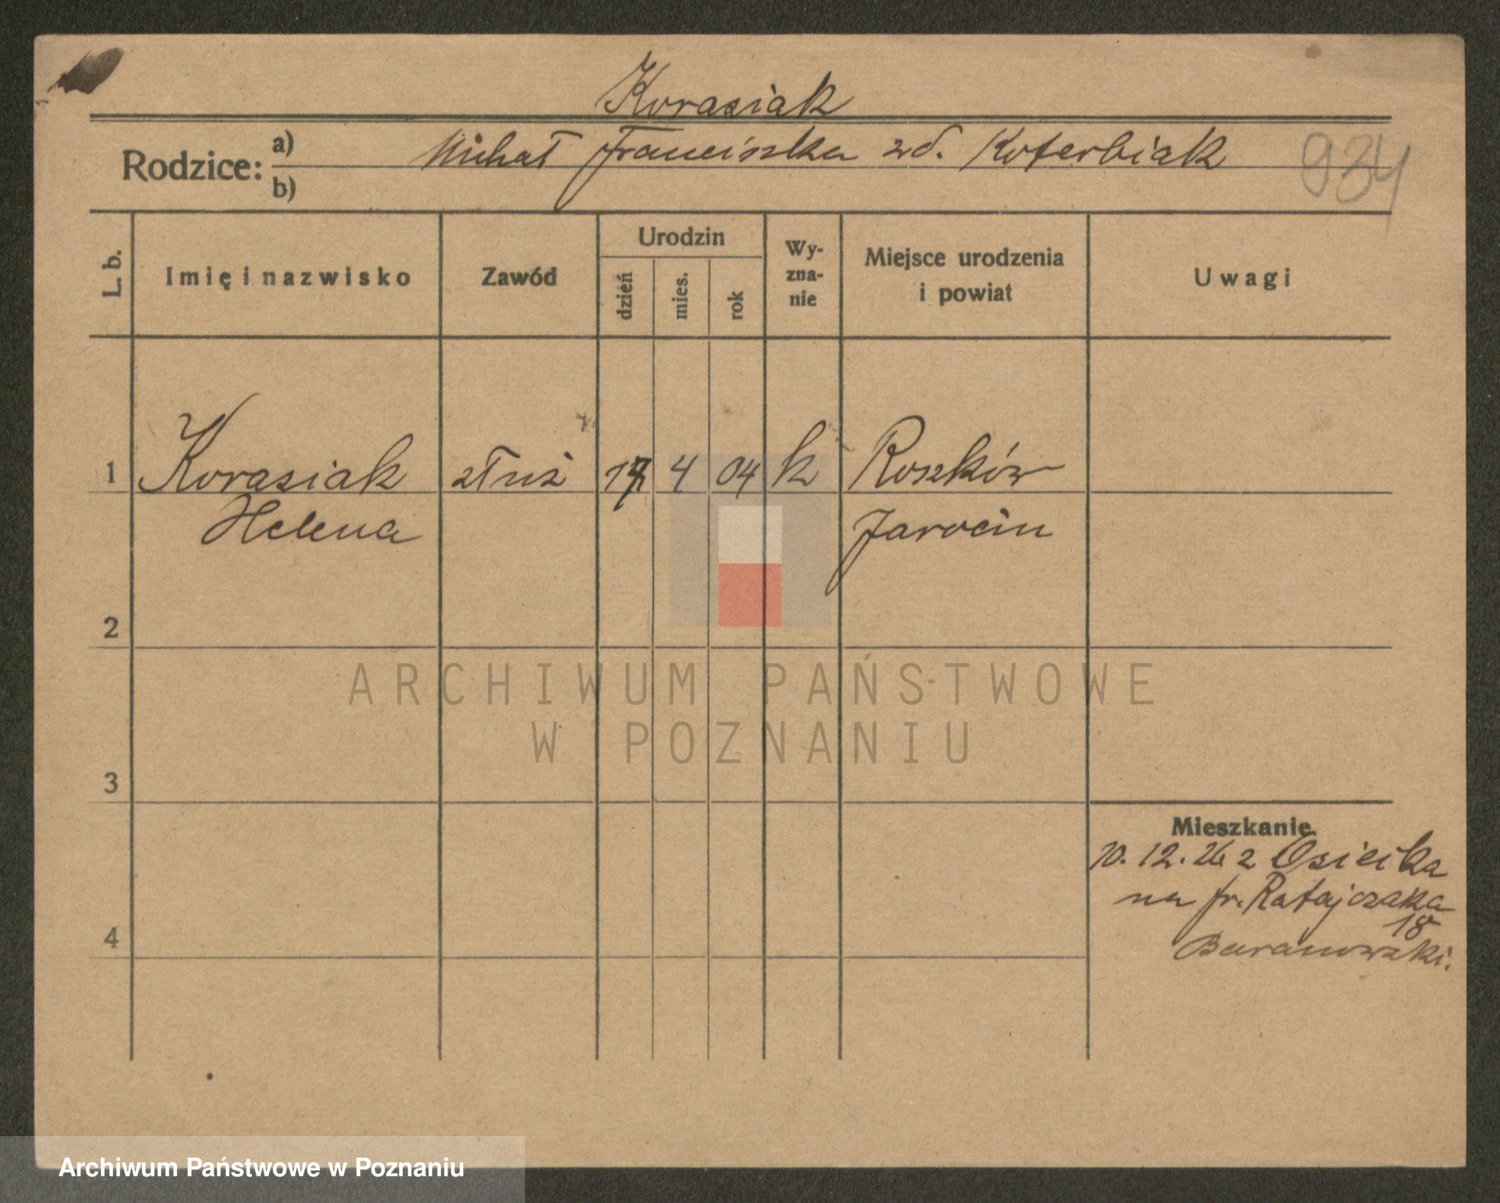 Korasiak
Rodzice: a) Michał Franciszka zd. Koterbiak
b)
934
L. b. Imię i nazwisko Zawód Urodzin dzień mies. rok Wy-zna-nie Miejsce urodzenia i powiat Uwagi
1 Korasiak służ 17 4 04 k Roszków
Helena Jarocin
2
ARCHIWUM PAŃSTWOWE
W POZNANIU
3
Mieszkanie
10. 12. 26 z Osiecka
na fr. Ratajczaka
18
4 Baranowski.
Archiwum Państwowe w Poznaniu